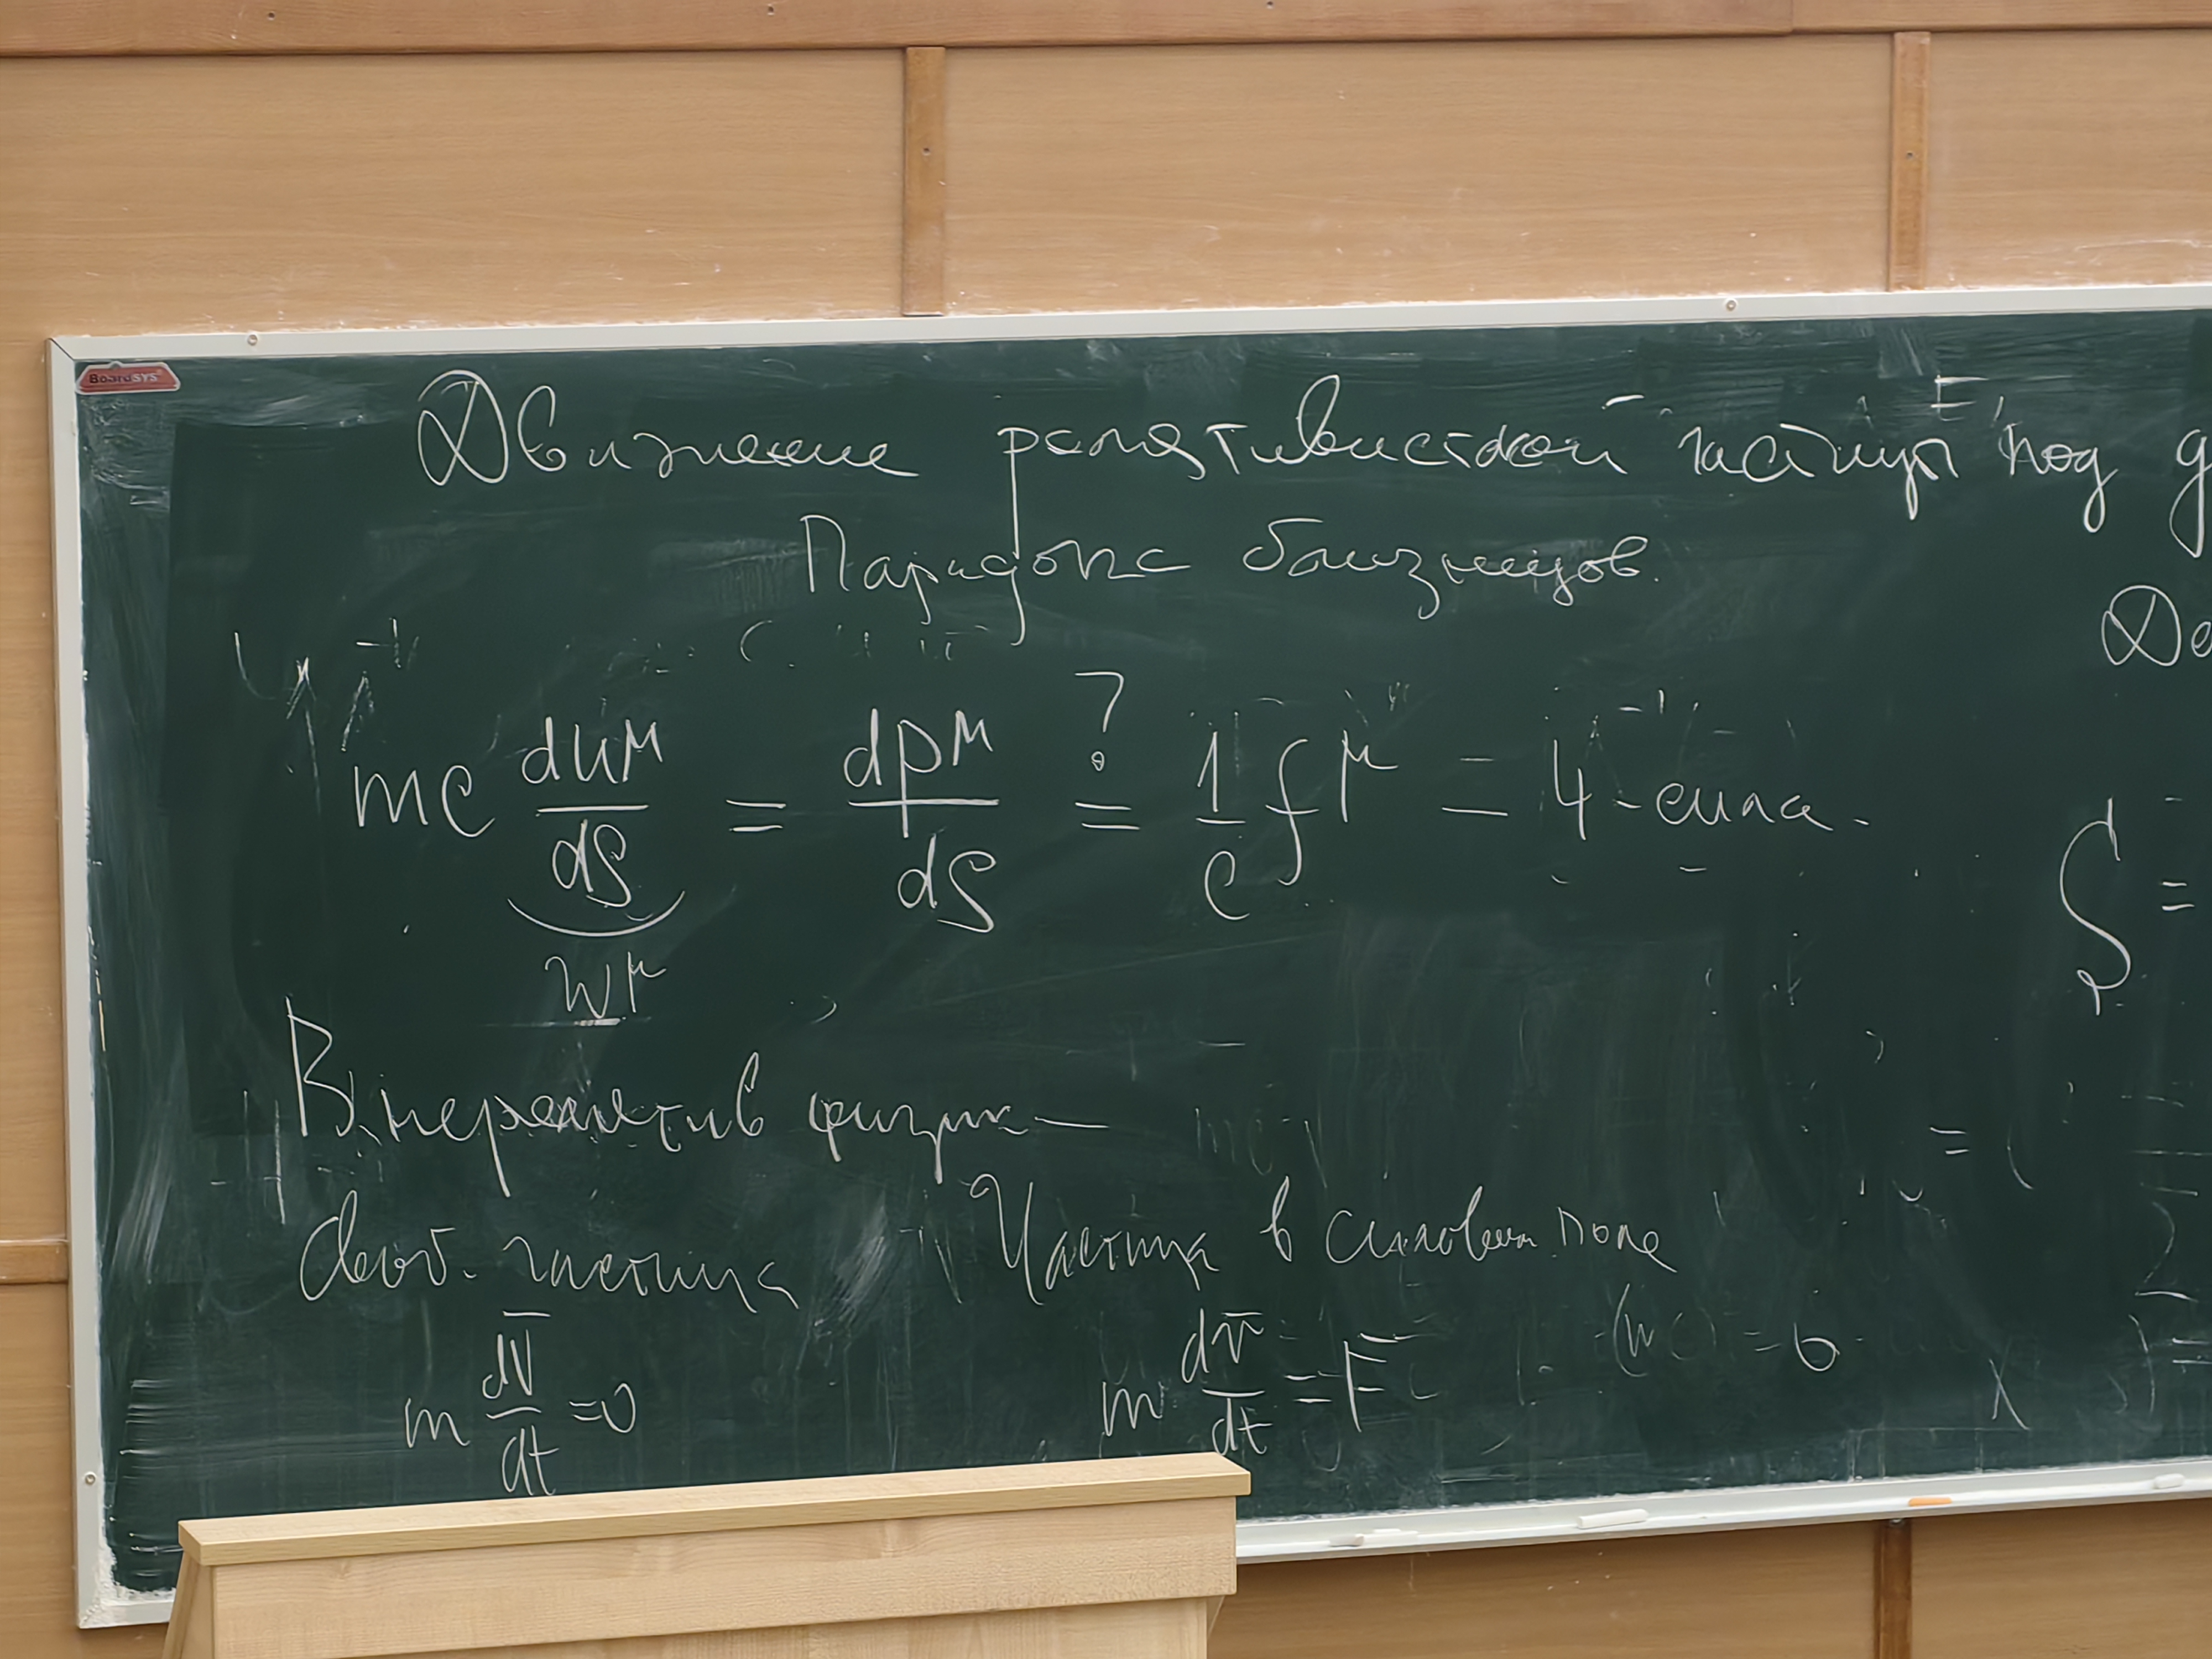 BoardSYS
Движение релятивистской частицы под д
Парадокс близнецов.
mc du^μ/dS = dp^μ/dS =? 1/c f^μ = 4-сила.
w^μ
В нерелятив физике
Своб. частица Частица в силовом поле
m dv̄/dt = 0 m dv̄/dt = F̄
S =